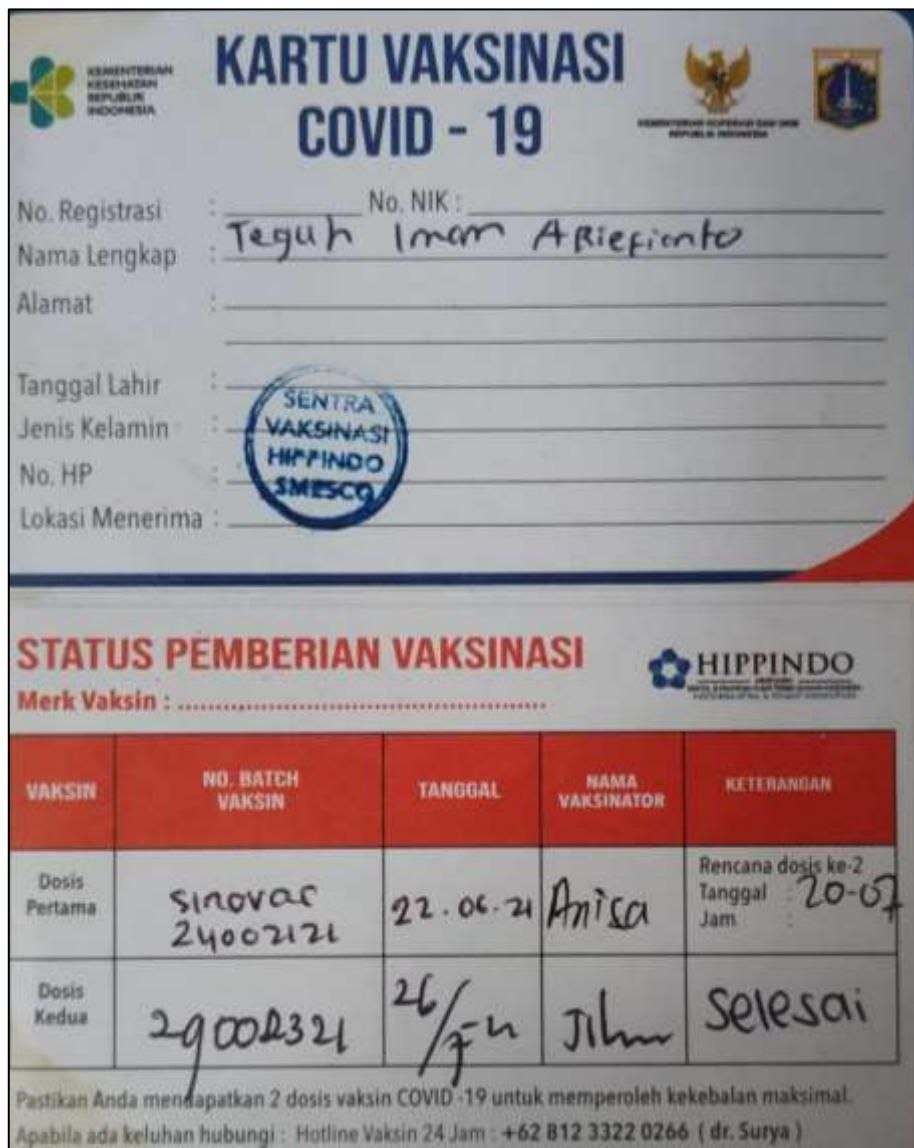 KEMENTERIAN
KESEHATAN
REPUBLIK
INDONESIA
KARTU VAKSINASI
COVID - 19
KEMENTERIAN KOPERASI DAN UKM
REPUBLIK INDONESIA
No. Registrasi : No. NIK :
Nama Lengkap : Teguh Imam ARiefianto
Alamat :
Tanggal Lahir :
Jenis Kelamin :
No. HP :
Lokasi Menerima :
SENTRA
VAKSINASI
HIPPINDO
SMESCO
STATUS PEMBERIAN VAKSINASI
HIPPINDO
Merk Vaksin :
VAKSIN NO. BATCH VAKSIN TANGGAL NAMA VAKSINATOR KETERANGAN
Dosis Pertama
Sinovac
24002121
22.06.21
Anisa
Rencana dosis ke-2
Tanggal : 20-07
Jam :
Dosis Kedua
29002321
26/7-21
Selesai
Pastikan Anda mendapatkan 2 dosis vaksin COVID -19 untuk memperoleh kekebalan maksimal.
Apabila ada keluhan hubungi : Hotline Vaksin 24 Jam : +62 812 3322 0266 ( dr. Surya )